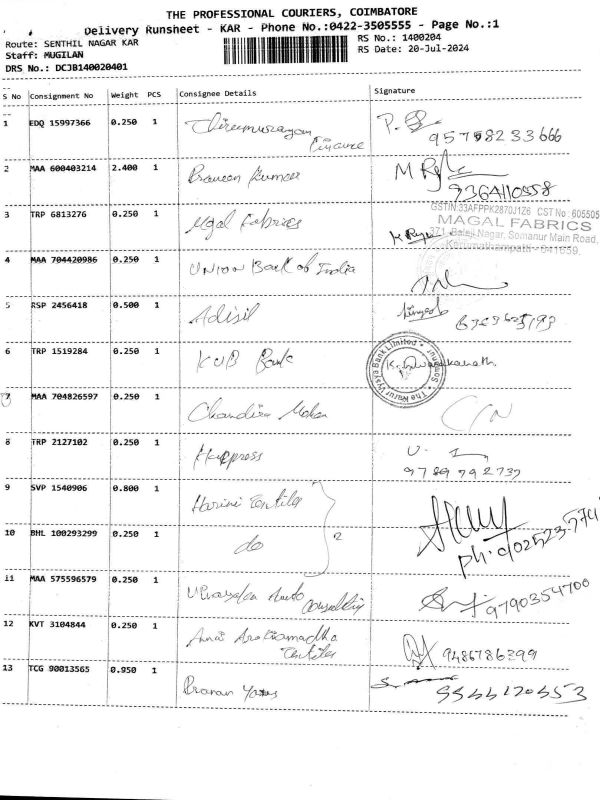 THE PROFESSIONAL COURIERS, COIMBATORE
Delivery Runsheet - KAR - Phone No.:0422-3505555 - Page No.:1
Route: SENTHIL NAGAR KAR
RS No.: 1400204
Staff: MUGILAN
RS Date: 20-Jul-2024
DRS No.: DCJB140020401
S No Consignment No Weight PCS Consignee Details Signature
1 EDQ 15997366 0.250 1 Thirumurugan Finance
2 MAA 600403214 2.400 1 Praveen Kumar M
3 TRP 6813276 0.250 1 Mgal Fabrics
GSTIN:33AFPPK2870J1Z6 CST No : 605505
MAGAL FABRICS
371, Balaji Nagar, Somanur Main Road,
Karumathampatti - 641659.
4 MAA 704420986 0.250 1 Union Bank of India
5 RSP 2456418 0.500 1 Adisil
6 TRP 1519284 0.250 1 KVB Bank
The Karur Vysya Bank Limited Somanur
7 MAA 704826597 0.250 1 Chandira Mohan
8 TRP 2127102 0.250 1
9789792737
9 SVP 1540906 0.800 1 Harini Textiles
10 BHL 100293299 0.250 1 do 2
ph:
11 MAA 575596579 0.250 1 Auto
9790354700
12 KVT 3104844 0.250 1 Annai Textiles
9486786399
13 TCG 90013565 0.950 1 Pranan Yarns